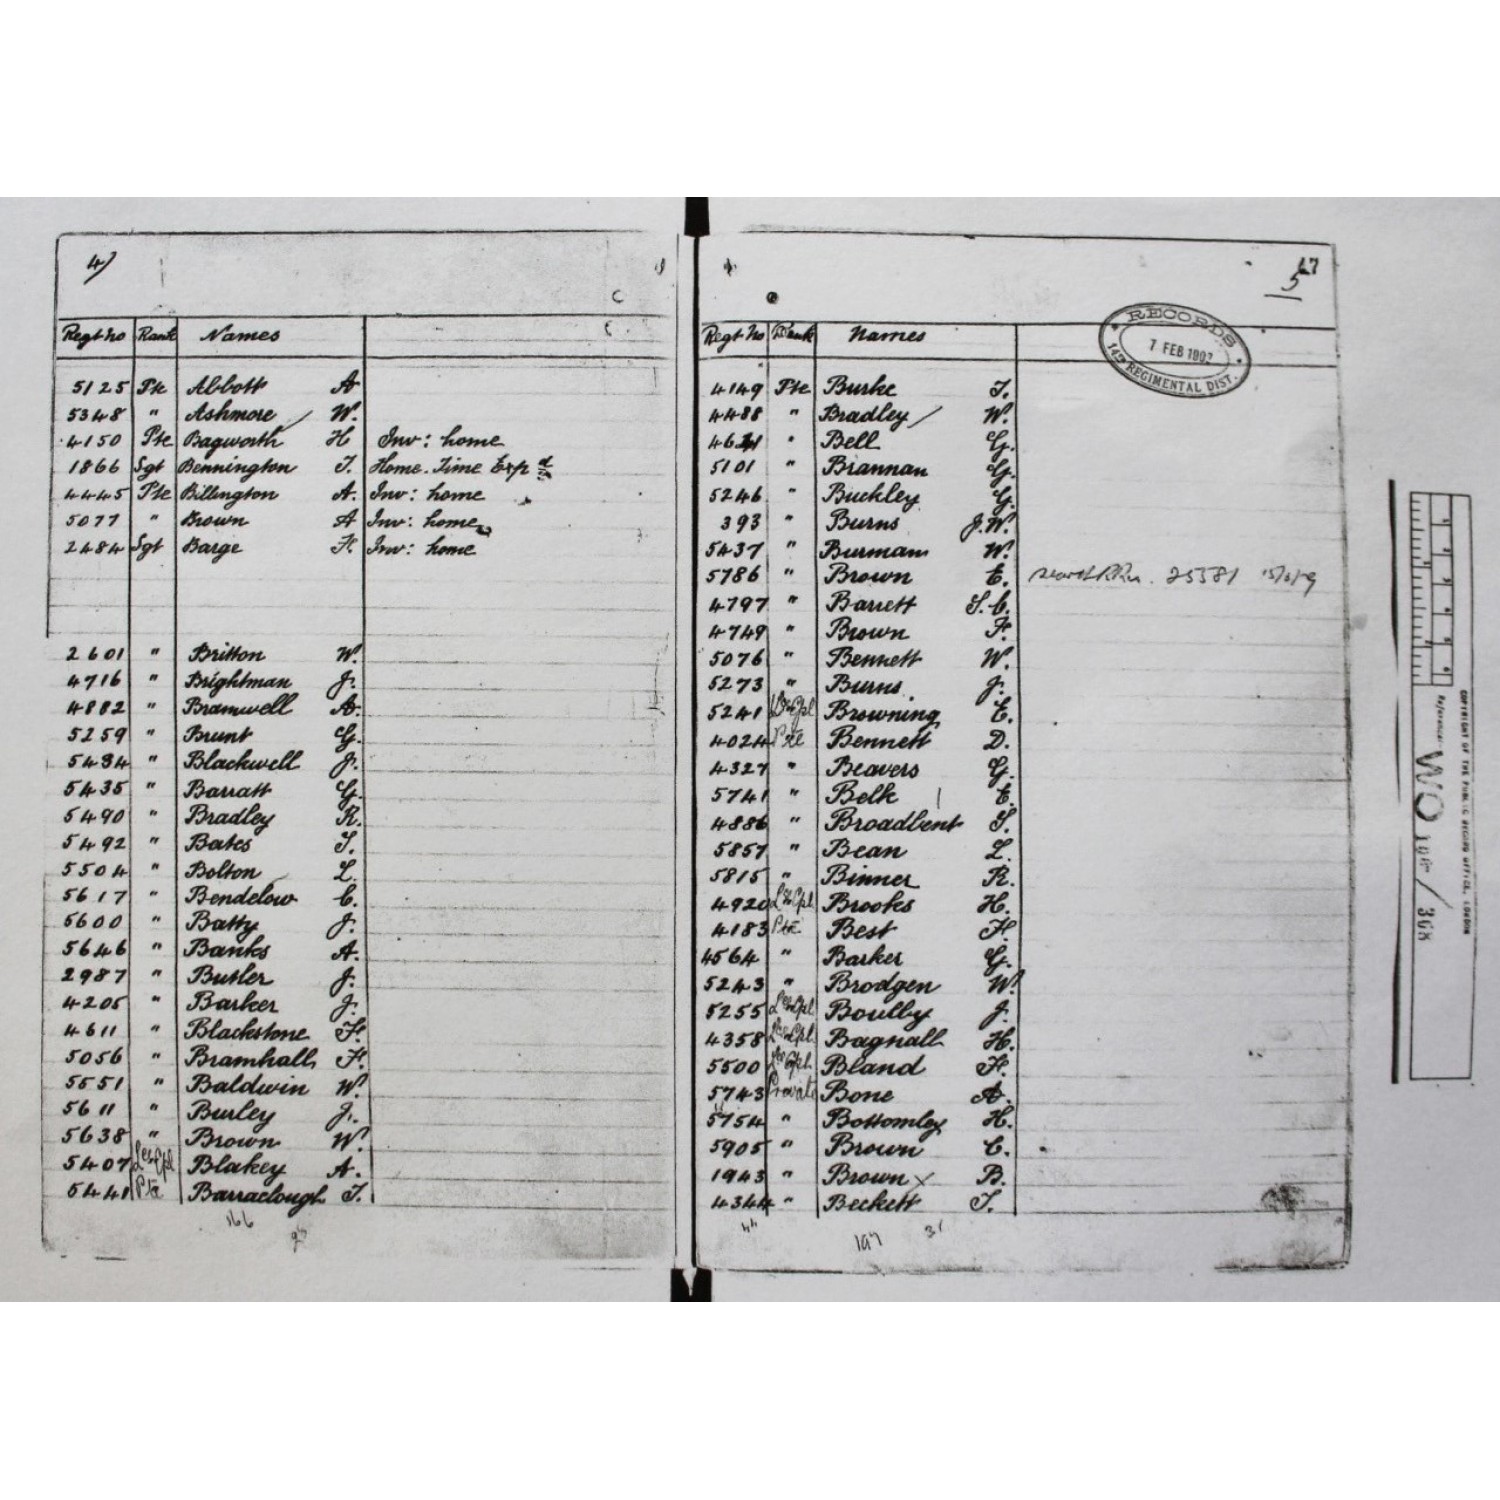 4)
Regt No Rank Names
5125 Pte Abbott A
5348 " Ashmore W.
4150 Pte Bagworth H Inv: home
1866 Sgt Bennington T. Home. Time Exp d
4445 Pte Billington A. Inv: home
5077 " Brown A Inv: home
2484 Sgt Barge F. Inv: home
2601 " Britton W.
4716 " Brightman J.
4882 " Bramwell A.
5259 " Brunt G.
5434 " Blackwell J.
5435 " Barratt G.
5490 " Bradley R.
5492 " Bates T.
5504 " Bolton L.
5617 " Bendelow C.
5600 " Batty J.
5646 " Banks A.
2987 " Butler J.
4205 " Barker J.
4611 " Blackstone F.
5056 " Bramhall F.
5551 " Baldwin W.
5611 " Burley J.
5638 " Brown W.
5407 Lce Cpl Blakey A.
5441 Pte Barraclough T.
166
5
RECORDS
7 FEB 1902
14TH REGIMENTAL DIST.
Regt No Rank Names
4149 Pte Burke T.
4488 " Bradley W.
" Bell G.
5101 " Brannan G.
5246 " Buckley G.
393 " Burns J.W.
5437 " Burman W.
5786 " Brown E. 25381
4797 " Barrett T.C.
4749 " Brown F.
5076 " Bennett W.
5273 " Burns J.
5241 Lce Cpl Browning E.
4024 Pte Bennett D.
4327 " Beavers G.
5741 " Belk E.
4886 " Broadbent T.
5857 " Bean L.
5815 " Binner R.
4920 Lce Cpl Brooks H.
4183 Pte Best F.
4564 " Barker G.
5243 " Brodgen W.
5255 Lce Cpl Boulby J.
4358 Lce Cpl Bagnall H.
5500 Lce Cpl Bland F.
5743 Private Bone A.
5754 " Bottomley H.
5905 " Brown C.
1943 " Brown B.
4344 " Beckett T.
197 31
COPYRIGHT OF THE PUBLIC RECORD OFFICE, LONDON
Reference: WO